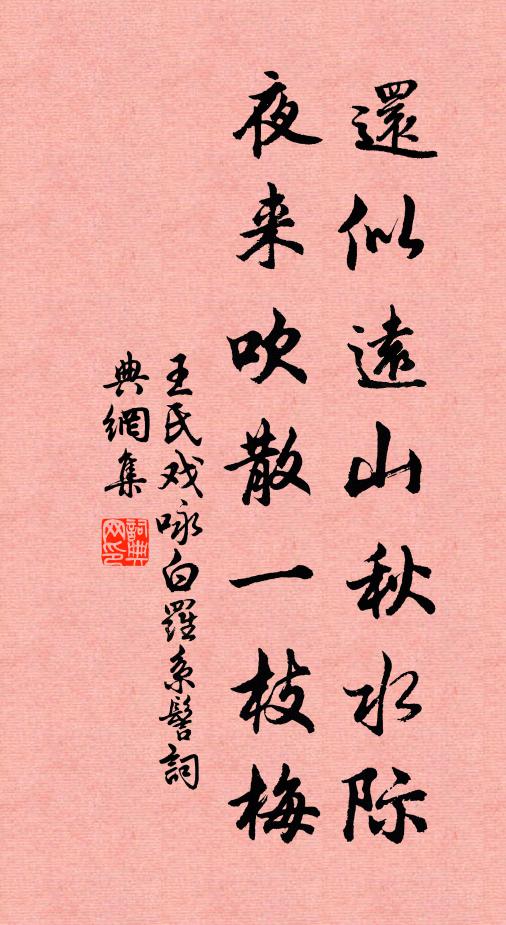 還似遠山秋水际
夜来吹散一枝梅
王氏戏咏白羅系髻詞
典網集
詞典网印